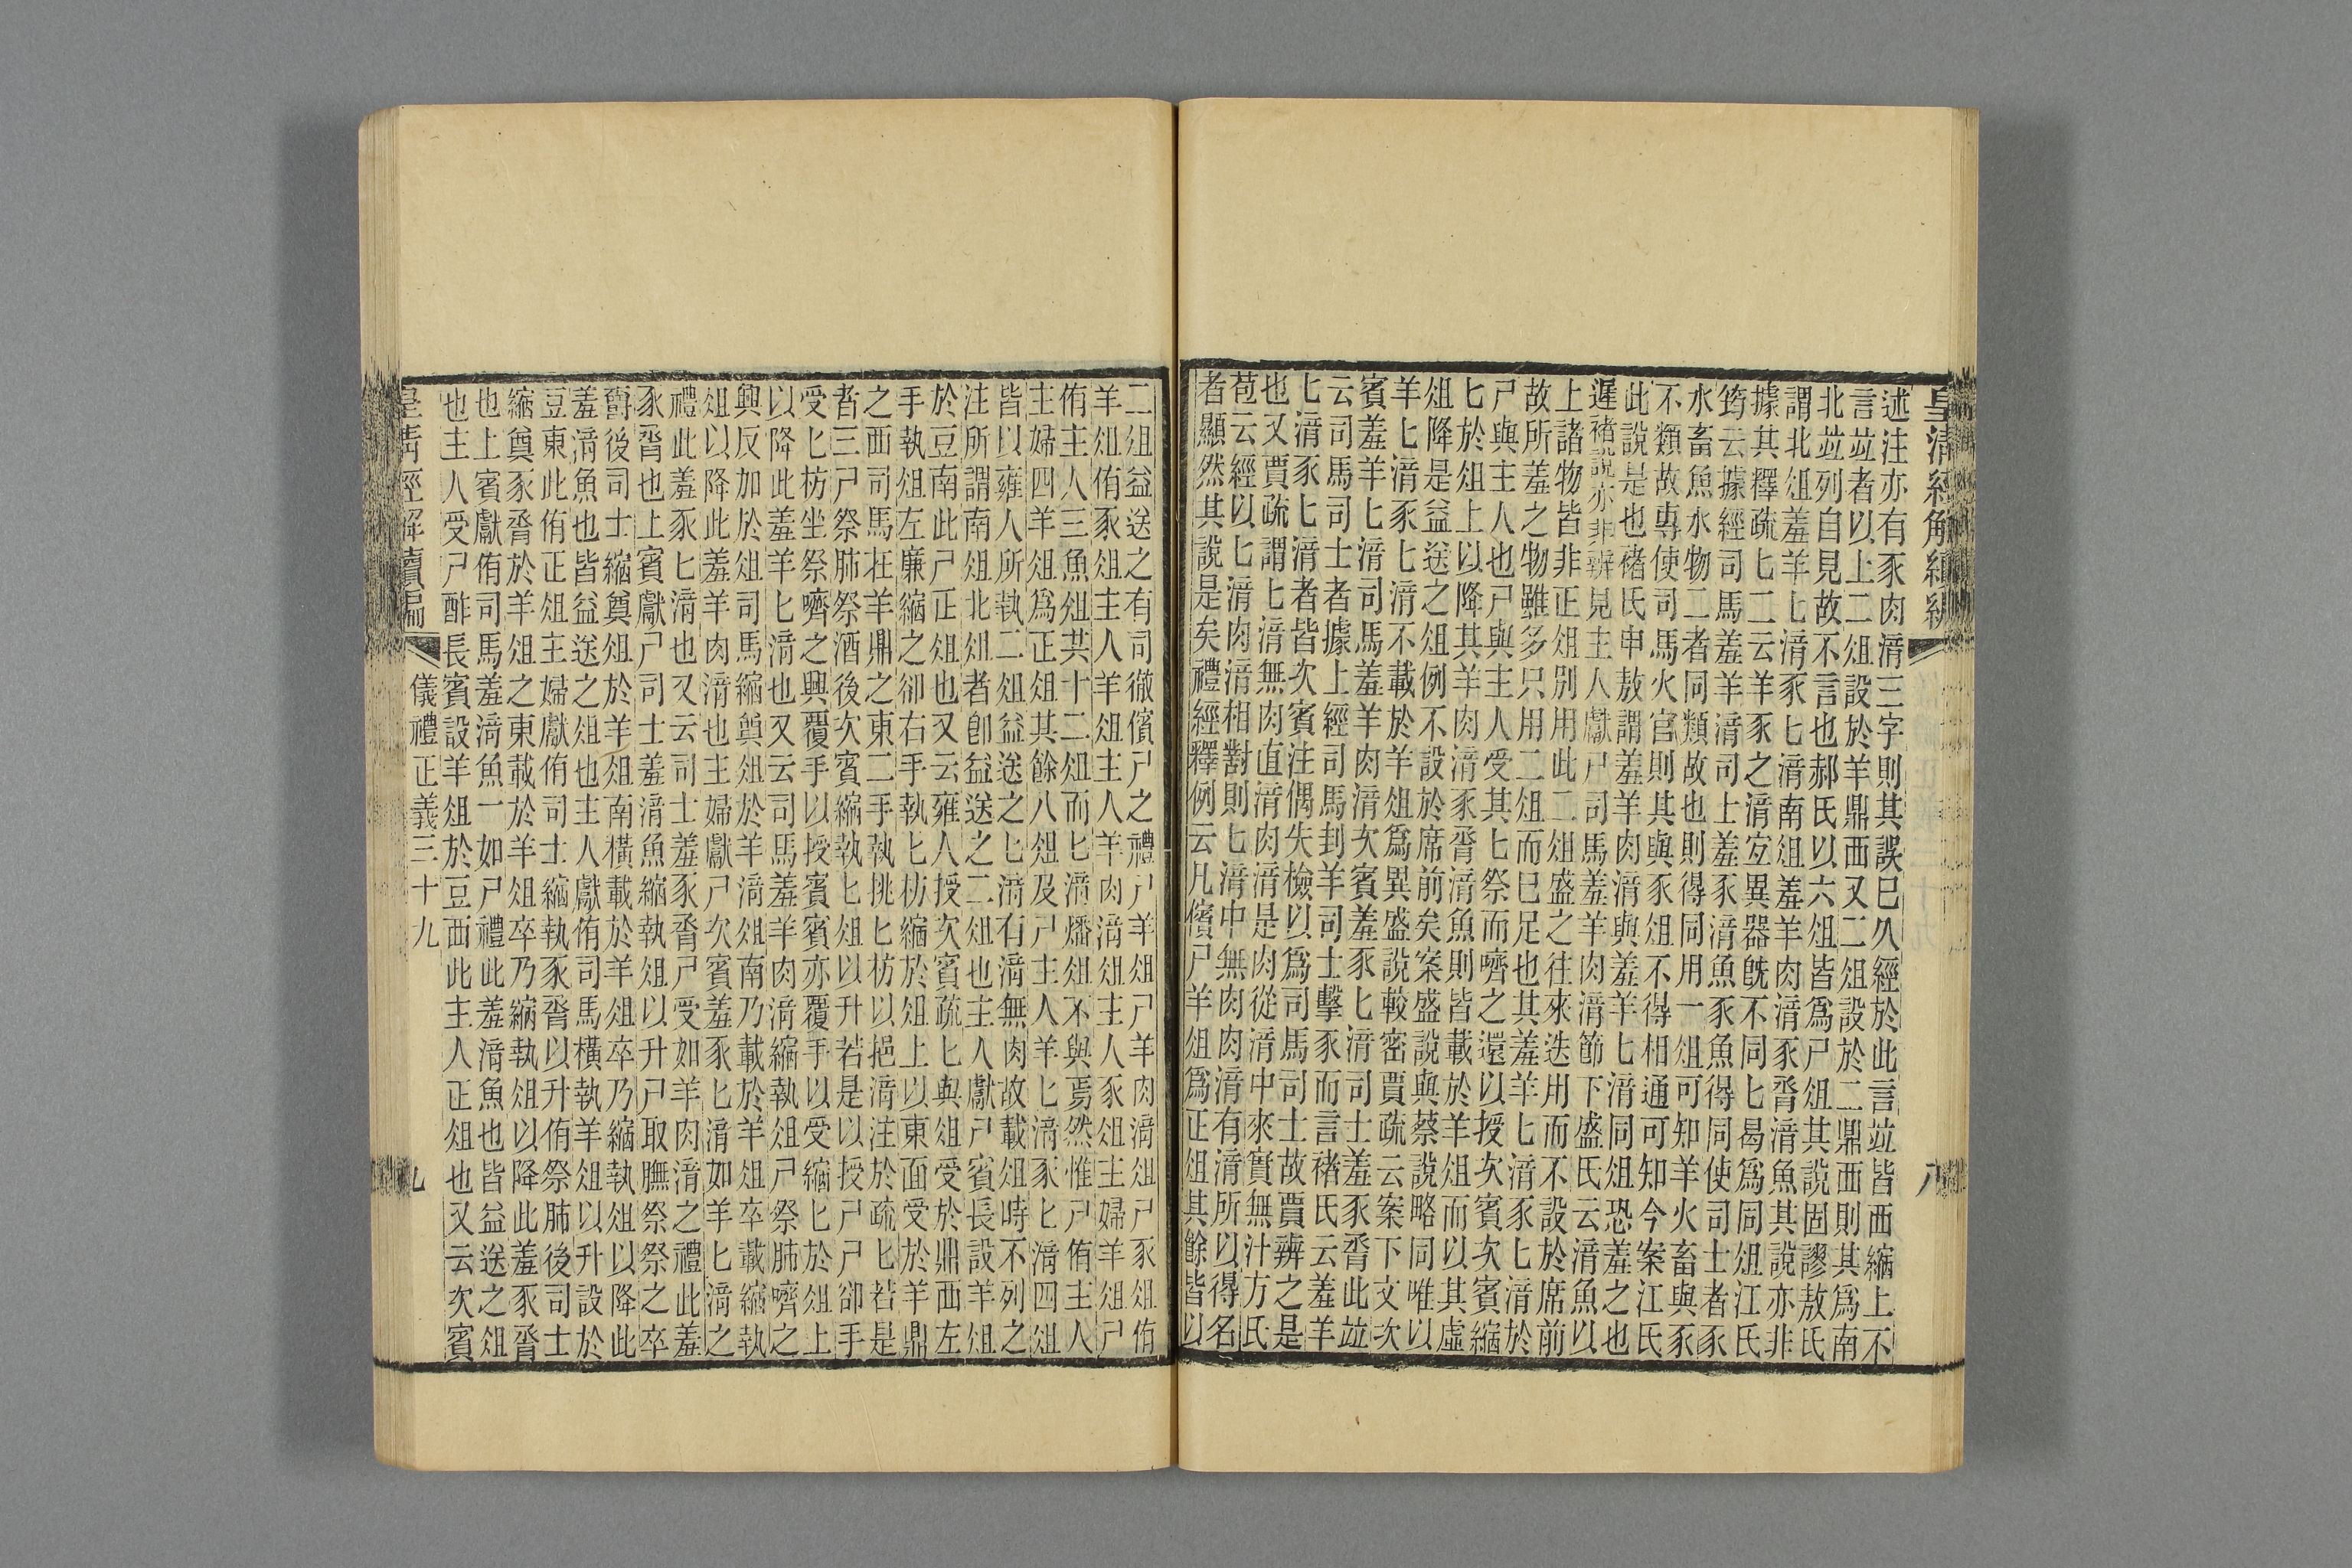 皇清經解續編
八
述注亦有豕肉湆三字則其誤已久經於此言竝皆西縮上不
言竝者以上二俎設於羊鼎西又二俎設於二鼎西則其爲南
北竝列自見故不言也郝氏以六俎皆爲尸俎其說固謬敖氏
謂北俎羞羊匕湆豕匕湆南俎羞羊肉湆豕脀湆魚其說亦非
據其釋疏匕二云羊豕之湆宐異器旣不同匕曷爲同俎江氏
筠云據經司馬羞羊湆司士羞豕湆魚豕魚得同使司士者豕
水畜魚水物二者同類故也則得同用一俎可知羊火畜與豕
不類故專使司馬火官則其與豕俎不得相通可知今案江氏
此說是也褚氏申敖謂羞羊肉湆與羞羊匕湆同俎恐羞之也
遲褚說亦非辨見主人獻尸司馬羞羊肉湆節下盛氏云湆魚以
上諸物皆非正俎別用此二俎盛之往來迭用而不設於席前
故所羞之物雖多只用二俎而已足也其羞羊匕湆豕匕湆於
尸與主人也尸與主人受其匕祭而嚌之還以授次賓次賓縮
匕於俎上以降其羊肉湆豕脀湆魚則皆載於羊俎而以其虛
俎降是益送之俎例不設於席前矣案盛說與蔡說略同唯以
羊匕湆豕匕湆不載於羊俎爲異盛說較密賈疏云案下文次
賓羞羊匕湆司馬羞羊肉湆次賓羞豕匕湆司士羞豕脀此竝
云司馬司士者據上經司馬刲羊司士擊豕而言褚氏云羞羊
匕湆豕匕湆者皆次賓注偶失檢以爲司馬司士故賈辨之是
也又賈疏謂匕湆無肉直湆肉湆是肉從湆中來實無汁方氏
苞云經以匕湆肉湆相對則匕湆中無肉肉湆有湆所以得名
者顯然其說是矣禮經釋例云凡儐尸羊俎爲正俎其餘皆以
二俎益送之有司徹儐尸之禮尸羊俎尸羊肉湆俎尸豕俎侑
羊俎侑豕俎主人羊俎主人羊肉湆俎主人豕俎主婦羊俎尸
侑主人三魚俎共十二俎而匕湆燔俎不與焉然惟尸侑主人
主婦四羊俎爲正俎其餘八俎及尸主人羊匕湆豕匕湆四俎
皆以雍人所執二俎益送之匕湆有湆無肉故載俎時不列之
注所謂南俎北俎者卽益送之二俎也主人獻尸賓長設羊俎
於豆南此尸正俎也又云雍人授次賓疏匕與俎受於鼎西左
手執俎左廉縮之卻右手執匕枋縮於俎上以東面受於羊鼎
之西司馬在羊鼎之東二手執挑匕枋以挹湆注於疏匕若是
者三尸祭肺祭酒後次賓縮執匕俎以升若是以授尸尸卻手
受匕枋坐祭嚌之興覆手以授賓賓亦覆手以受縮匕於俎上
以降此羞羊匕湆也又云司馬羞羊肉湆縮執俎尸祭肺嚌之
興反加於俎司馬縮奠俎於羊湆俎南乃載於羊俎卒載縮執
俎以降此羞羊肉湆也主婦獻尸次賓羞豕匕湆如羊匕湆之
禮此羞豕匕湆也又云司士羞豕脀尸受如羊肉湆之禮此羞
豕脀也上賓獻尸司士羞湆魚縮執俎以升尸取膴祭祭之卒
爵後司士縮奠俎於羊俎南橫載於羊俎卒乃縮執俎以降此
羞湆魚也皆益送之俎也主人獻侑司馬橫執羊俎以升設於
豆東此侑正俎主婦獻侑司士縮執豕脀以升侑祭肺後司士
縮奠豕脀於羊俎之東載於羊俎卒乃縮執俎以降此羞豕脀
也上賓獻侑司馬羞湆魚一如尸禮此羞湆魚也皆益送之俎
也主人受尸酢長賓設羊俎於豆西此主人正俎也又云次賓
皇清經解續編
儀禮正義三十九
九